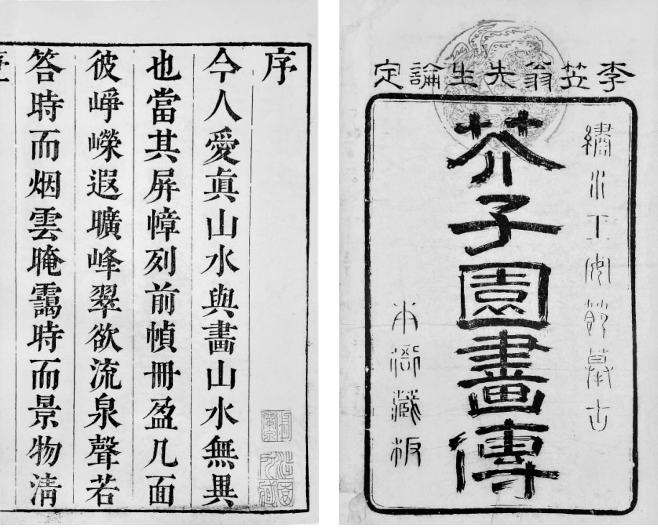 李笠翁先生論定
繡水王安節摹古
芥子園畫傳
本衙藏板
序
今人愛眞山水與畵山水無異
也當其屏幛列前幀冊盈几面
彼崢嶸遐曠峰翠欲流泉聲若
答時而烟雲晻靄時而景物清